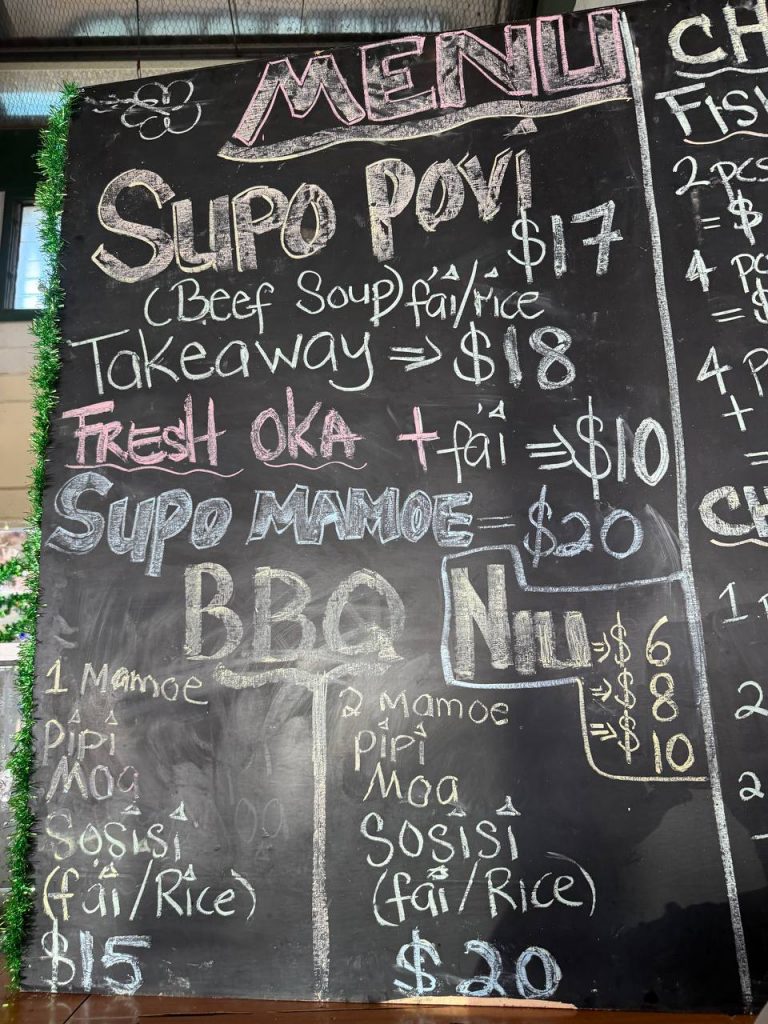 MENU
SUPO POVI
$17
(Beef Soup) fa'i/rice
Takeaway => $18
FRESH OKA + fa'i => $10
SUPO MAMOE = $20
BBQ
NIU => $6
=> $8
=> 10
1 Mamoe
pipi
Moa
Sosisi
(fai/Rice)
$15
2 Mamoe
pipi
Moa
Sosisi
(fai/Rice)
$20
CH
FIS
2 pcs
= $
4 pc
= $
4 p
+
=
CH
1 p
2
2